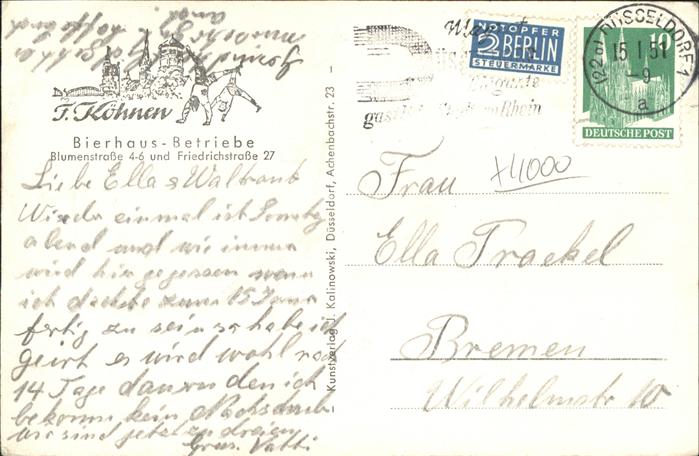 T. Köhnen
Bierhaus-Betriebe
Blumenstraße 4-6 und Friedrichstraße 27
Liebe Ella & Waltraut
Wieder einmal ist Sonntag
abend und wie immer
wird hier gesessen wenn
ich dachte zum 15 Januar
fertig zu sein so habe ich
geirrt es wird wohl noch
14 Tage dauern denn ich
bekomme kein Nachschub
wir sind jetzt zu dreien
Gruss Vatti
Kunstverlag J. Kalinowski, Düsseldorf, Achenbachstr. 23
NOTOPFER
2 BERLIN
STEUERMARKE
elegante
am Rhein
(22a) DÜSSELDORF 1
15.1.51
-9
a
10
DEUTSCHE POST
+4000
Frau
Ella Trackel
Bremen
Wilhelmstr 10